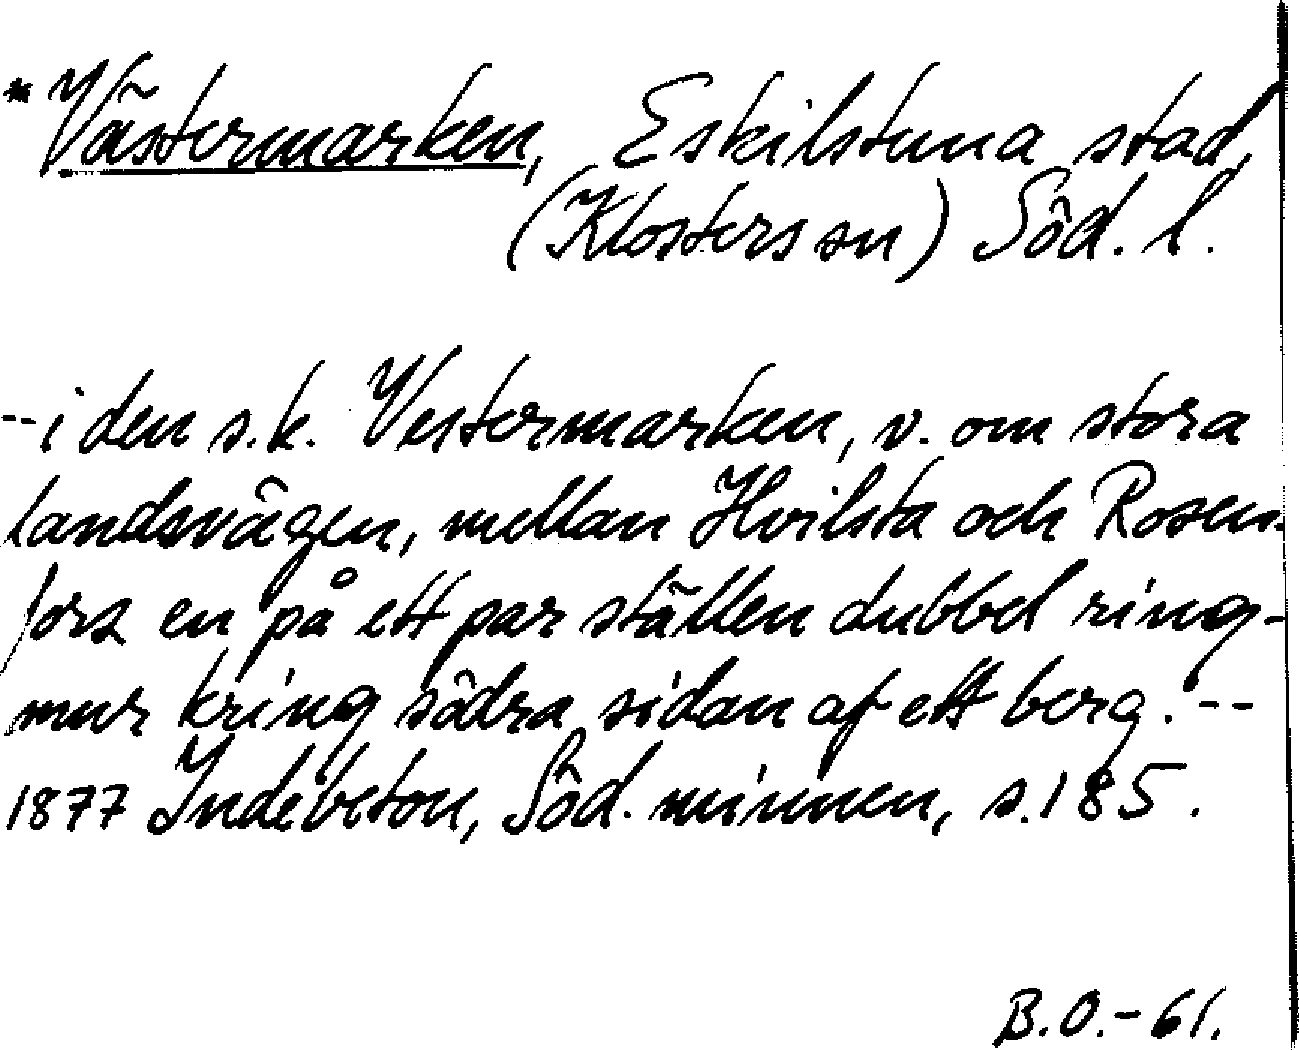 *Västermarken, Eskilstuna stad,
(Klosters sn) Söd. l.
--i den s.k. Vestermarken, v. om stora
landsvägen, mellan Hvilsta och Rosen-
fors en på ett par ställen dubbel ring-
mur kring södra sidan af ett berg. --
1877 Indebetou, Söd. minnen, s.185.
B.O.-61.